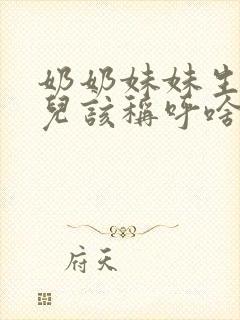 奶奶妹妹生
兒該稱呼啥
府天